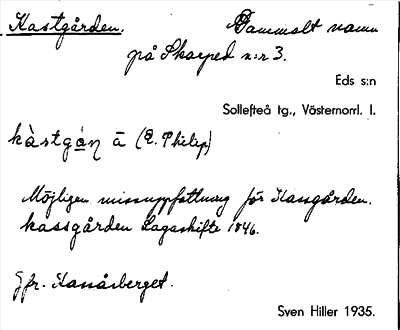 Kastgården. Gammalt namn
på Skarped n:r 3.
Eds s:n
Sollefteå tg., Västernorrl. l.
kàstgán̥ ā (E. Philip)
Möjligen missuppfattning för Kassgården.
kassgården Lagaskifte 1846.
Jfr. Kanåsberget.
Sven Hiller 1935.